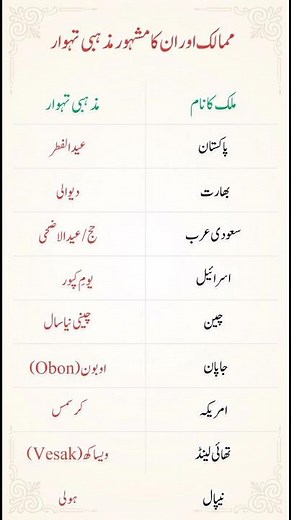 ممالک اور ان کا مشہور مذہبی تہوار
ملک کا نام مذہبی تہوار
پاکستان عید الفطر
بھارت دیوالی
سعودی عرب حج/عید الاضحیٰ
اسرائیل یومِ کپور
چین چینی نیا سال
جاپان اوبون (Obon)
امریکہ کرسمس
تھائی لینڈ ویساکھ (Vesak)
نیپال ہولی